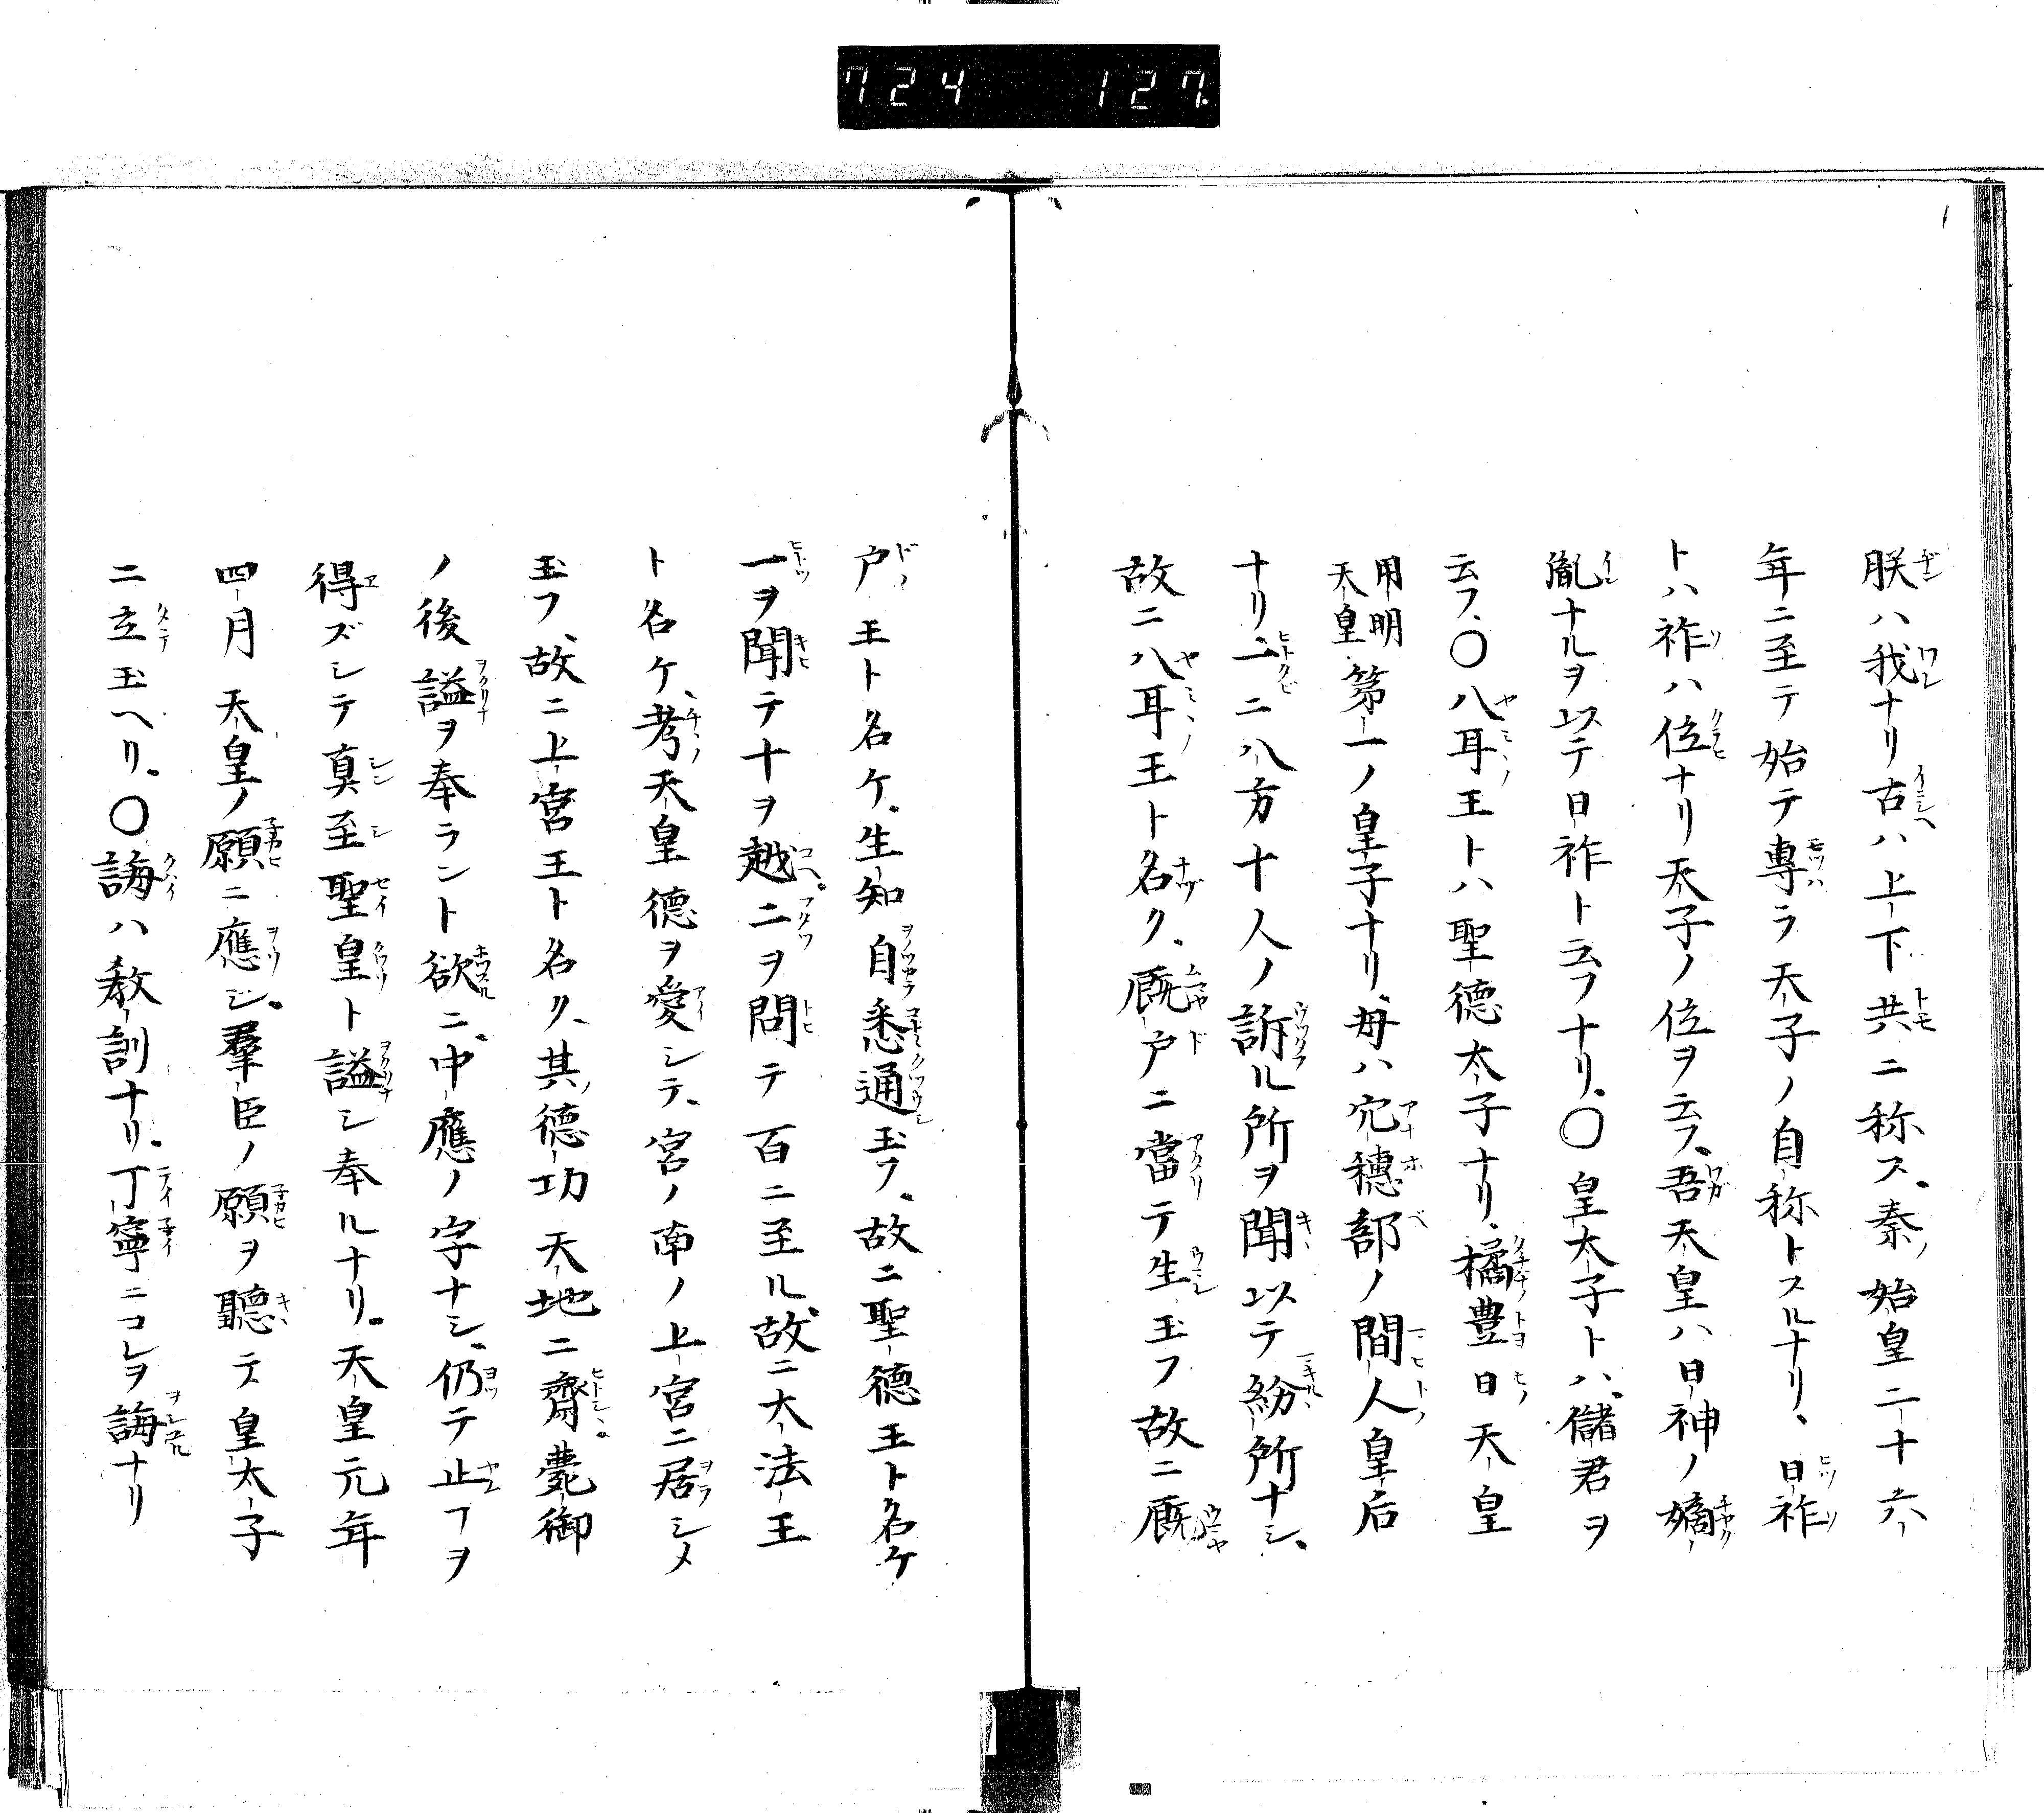 724 127
朕ハ我ナリ古ハ上下共ニ称ス、秦ノ始皇二十六
年ニ至テ始テ專ラ天子ノ自称トスルナリ、日祚
トハ祚ハ位ナリ天子ノ位ヲ云フ、吾天皇ハ日神ノ嫡
胤ナルヲ以テ日祚ト云フナリ。〇皇太子トハ、儲君ヲ
云フ、〇八耳王トハ聖德太子ナリ、橘豊日天皇
用明天皇第一ノ皇子ナリ、母ハ穴穗部ノ間人皇后
ナリ、一ニ八方十人ノ訴ル所ヲ聞以テ紛所ナシ、
故ニ八耳王ト名ク、厩戸ニ當テ生玉フ故ニ厩
戸王ト名ケ、生知自悉通玉フ、故ニ聖德王ト名ケ
一ヲ聞テ十ヲ越、二ヲ問テ百ニ至ル故ニ大法王
ト名ケ、考天皇德ヲ愛シテ、宮ノ南ノ上宮ニ居シメ
玉フ、故ニ上宮王ト名ク、其德功天地ニ齊、薨御
ノ後謚ヲ奉ラント欲ニ、中應ノ字ナシ、仍テ止ヿヲ
得ズシテ真至聖皇ト謚シ奉ルナリ。天皇元年
四月天皇ノ願ニ應シ、羣臣ノ願ヲ聽テ皇太子
ニ立玉ヘリ。〇誨ハ教訓ナリ。丁寧ニコレヲ誨ナリ